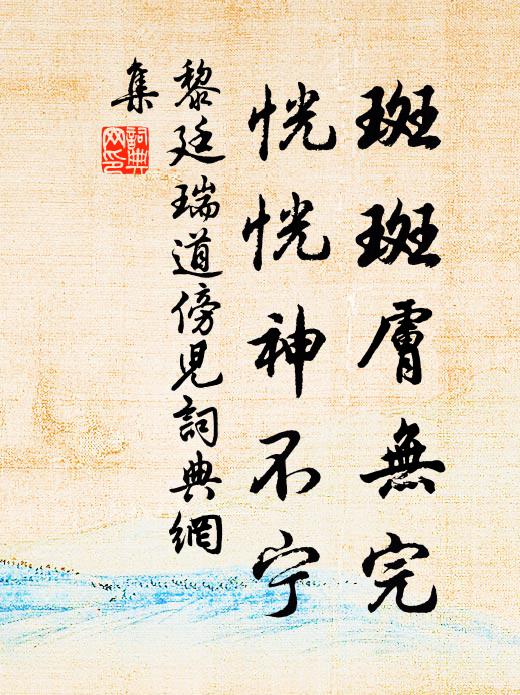 斑斑膚無完
恍恍神不宁
黎廷瑞道傍兒詞典網
集
詞典
网印